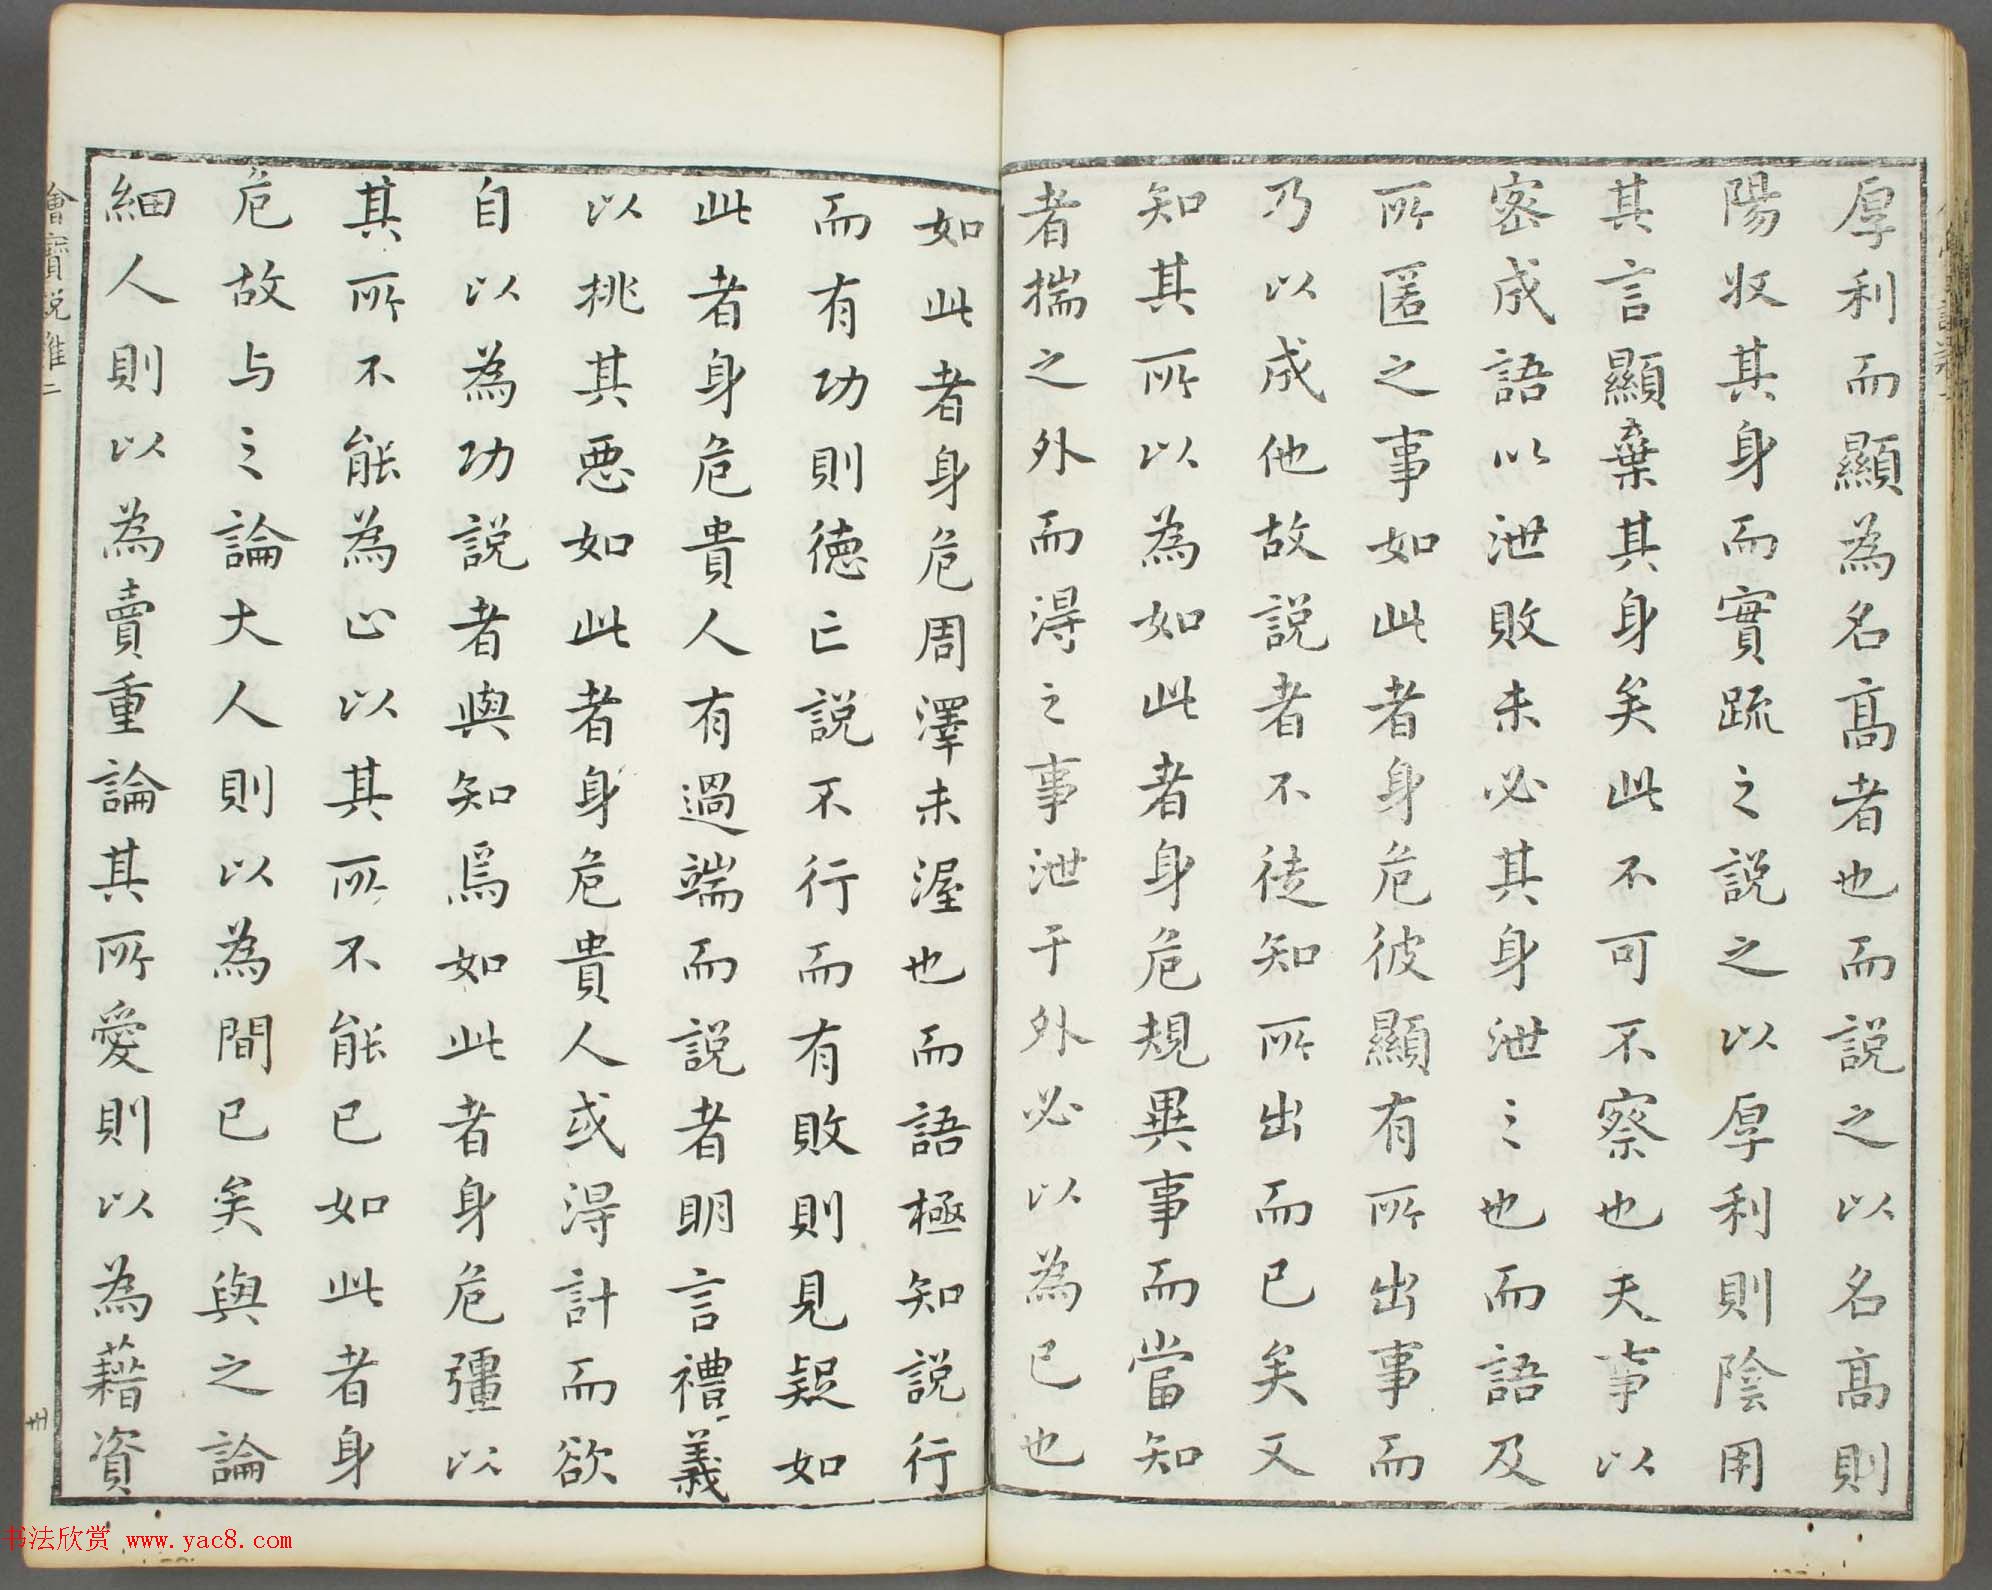 厚利而顯為名高者也而説之以名高則
陽收其身而實疏之説之以厚利則陰用
其言顯棄其身矣此不可不察也夫事以
密成語以泄敗未必其身泄之也而語及
所匿之事如此者身危彼顯有所出事而
乃以成他故説者不徒知所出而已矣又
知其所以為如此者身危規異事而當知
者揣之外而得之事泄于外必以為已也
如此者身危周澤未渥也而語極知説行
而有功則德亡説不行而有敗則見疑如
此者身危貴人有過端而説者明言禮義
以挑其惡如此者身危貴人或得計而欲
自以為功説者與知焉如此者身危彊以
其所不能為止以其所不能已如此者身
危故与之論大人則以為間已矣與之論
細人則以為賣重論其所愛則以為藉資
書法欣赏 www.yac8.com